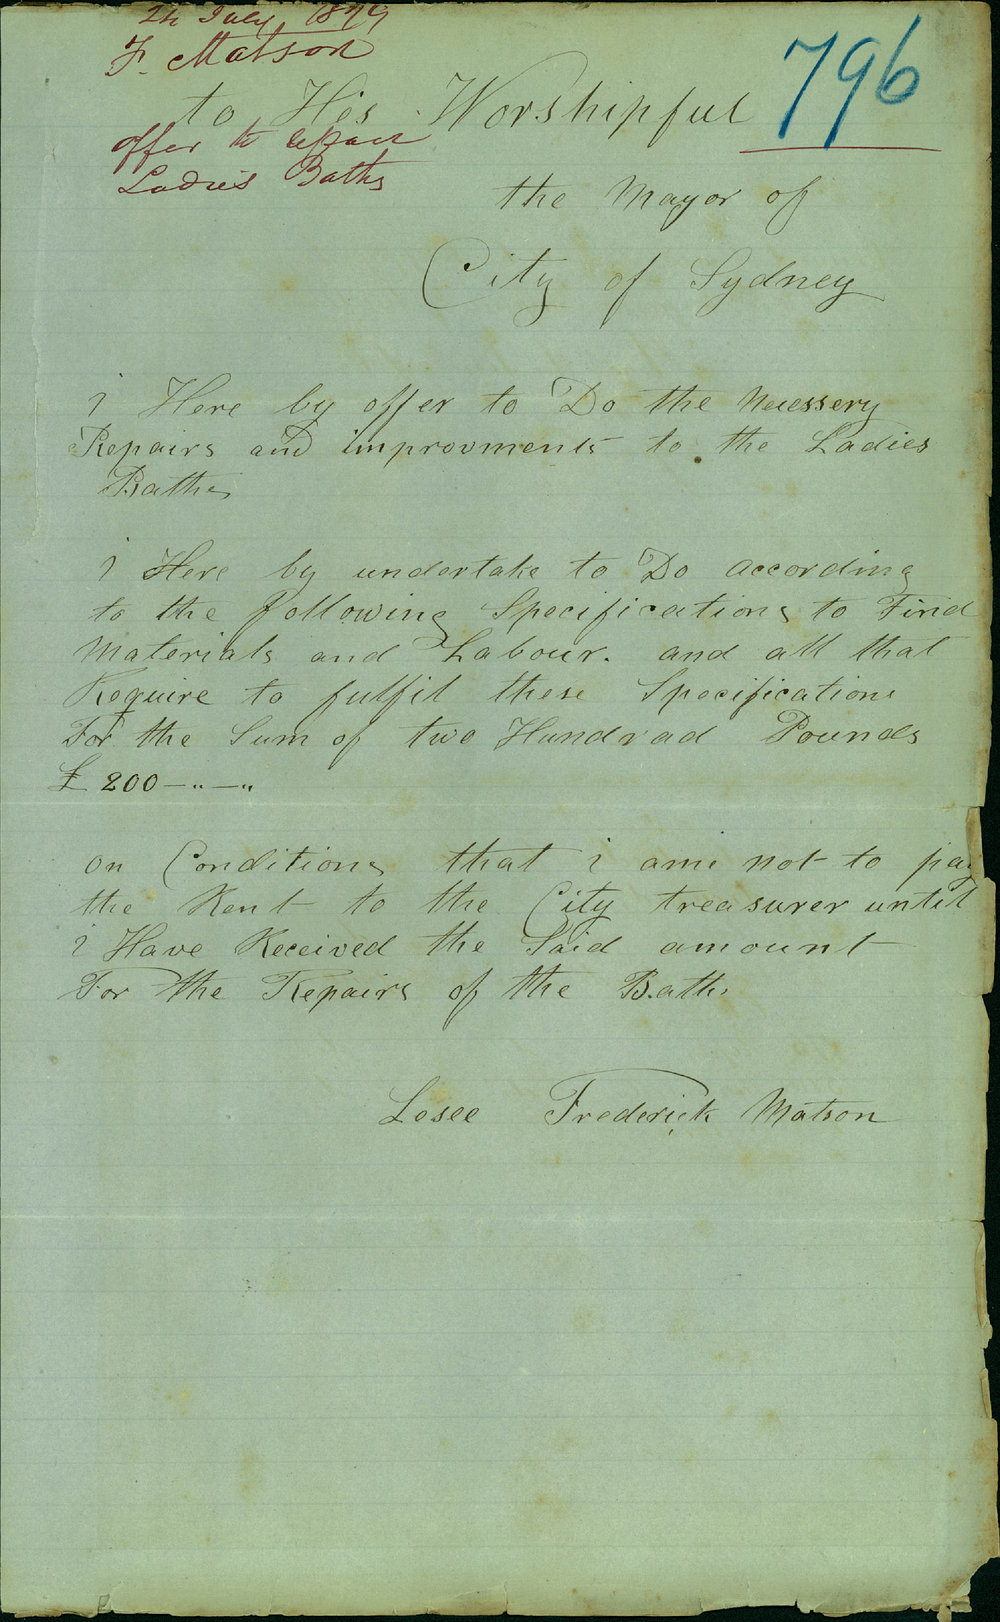 24 July 1879
F. Matson
796
to His Worshipful
offer to repair
Ladies Baths
the Mayor of
City of Sydney
i Here by offer to Do the Necessery
Repairs and improvments to the Ladies
Baths
i Here by undertake to Do according
to the following Specifications to Find
Materials and Labour. and all that
Require to fulfil these Specifications
For the Sum of two Hundrad Pounds
£ 200 — " — "
on Conditions that i ame not to pay
the Rent to the City treasurer until
i Have Received the Said amount
For the Repairs of the Baths
Lesee Frederick Matson